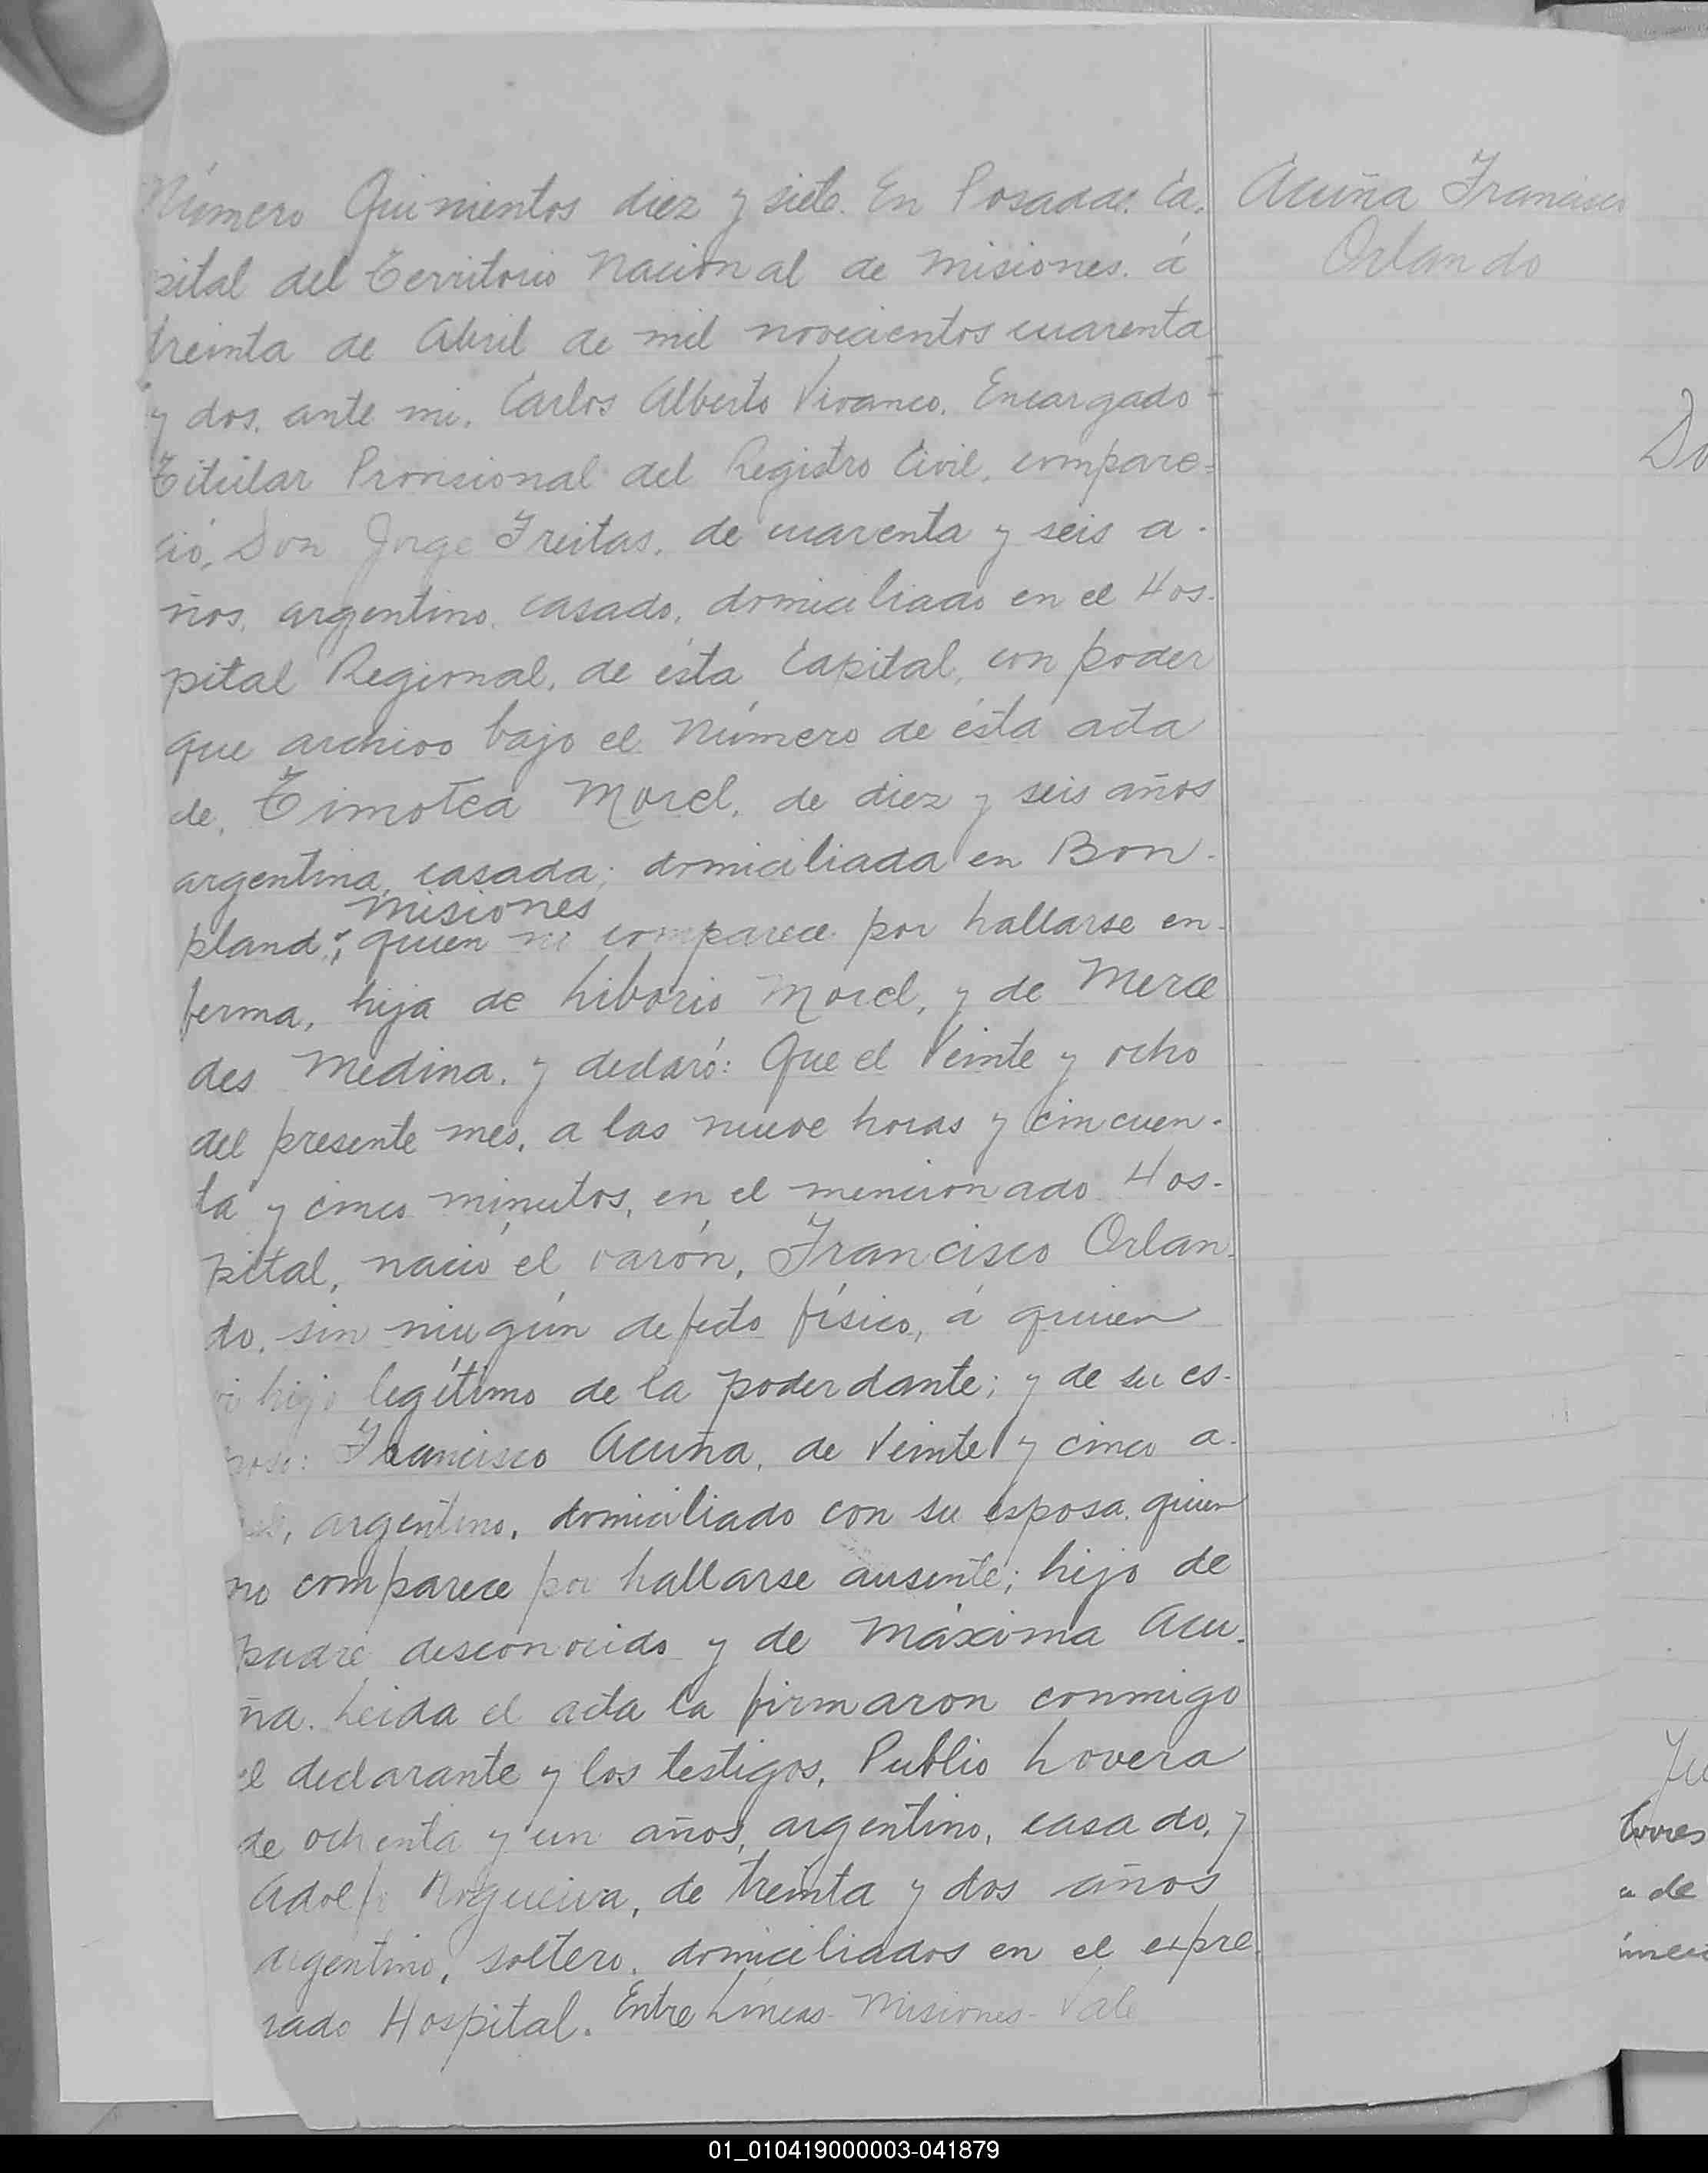 Número Quinientos diez y siete. En Posadas. Ca-
pital del Territorio Nacional de Misiones. á
treinta de Abril de mil novecientos cuarenta
y dos. ante mi. Carlos Alberto Vivanco. Encargado
Titular Provisional del Registro Civil, compare=
ció, Don Jorge Freitas, de cuarenta y seis a-
ños, argentino, casado, domiciliado en el Hos-
pital Regional, de ésta Capital, con poder
que archivo bajo el Número de ésta acta
de, Timotea Morel, de diez y seis años
argentina, casada; domiciliada en Bon-
misiones
pland; quien no comparece por hallarse en-
ferma, hija de Liborio Morel, y de Merce
des Medina. y declaró: Que el Veinte y ocho
del presente mes, a las nueve horas y cincuen-
ta y cinco minutos, en el mencionado Hos-
pital, nació el varón, Francisco Orlan-
do, sin ningún defecto físico, á quien
vi hijo legítimo de la poderdante; y de su es-
poso: Francisco Acuña, de Veinte y cinco a-
argentino, domiciliado con su esposa, quien
no comparece por hallarse ausente; hijo de
padre desconocido y de Máxima Acu-
ña. Leida el acta la firmaron conmigo
el declarante y los testigos, Publio Lovera
de ochenta y un años, argentino, casado, y
Adolfo Nogueira, de treinta y dos años
argentino, soltero, domiciliados en el expre-
sado Hospital. Entre Líneas - Misiones - Vale
Acuña Francisco
Orlando
Do
Ju
torres
a de
01_010419000003-041879